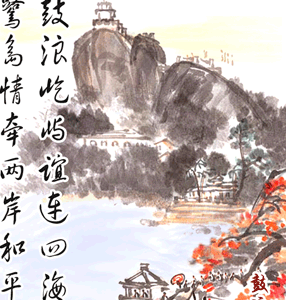 鼓浪屹屿谊连四海
鹭岛情牵两岸和平
鼓